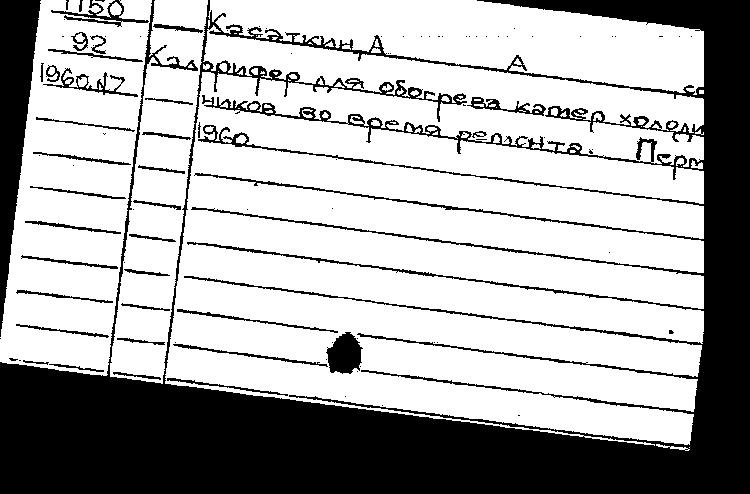 1150
Касаткин, А А со
92
Калорифер для обогрева камер холоди
1960.N7
ников во время ремонта. Перм
1960.